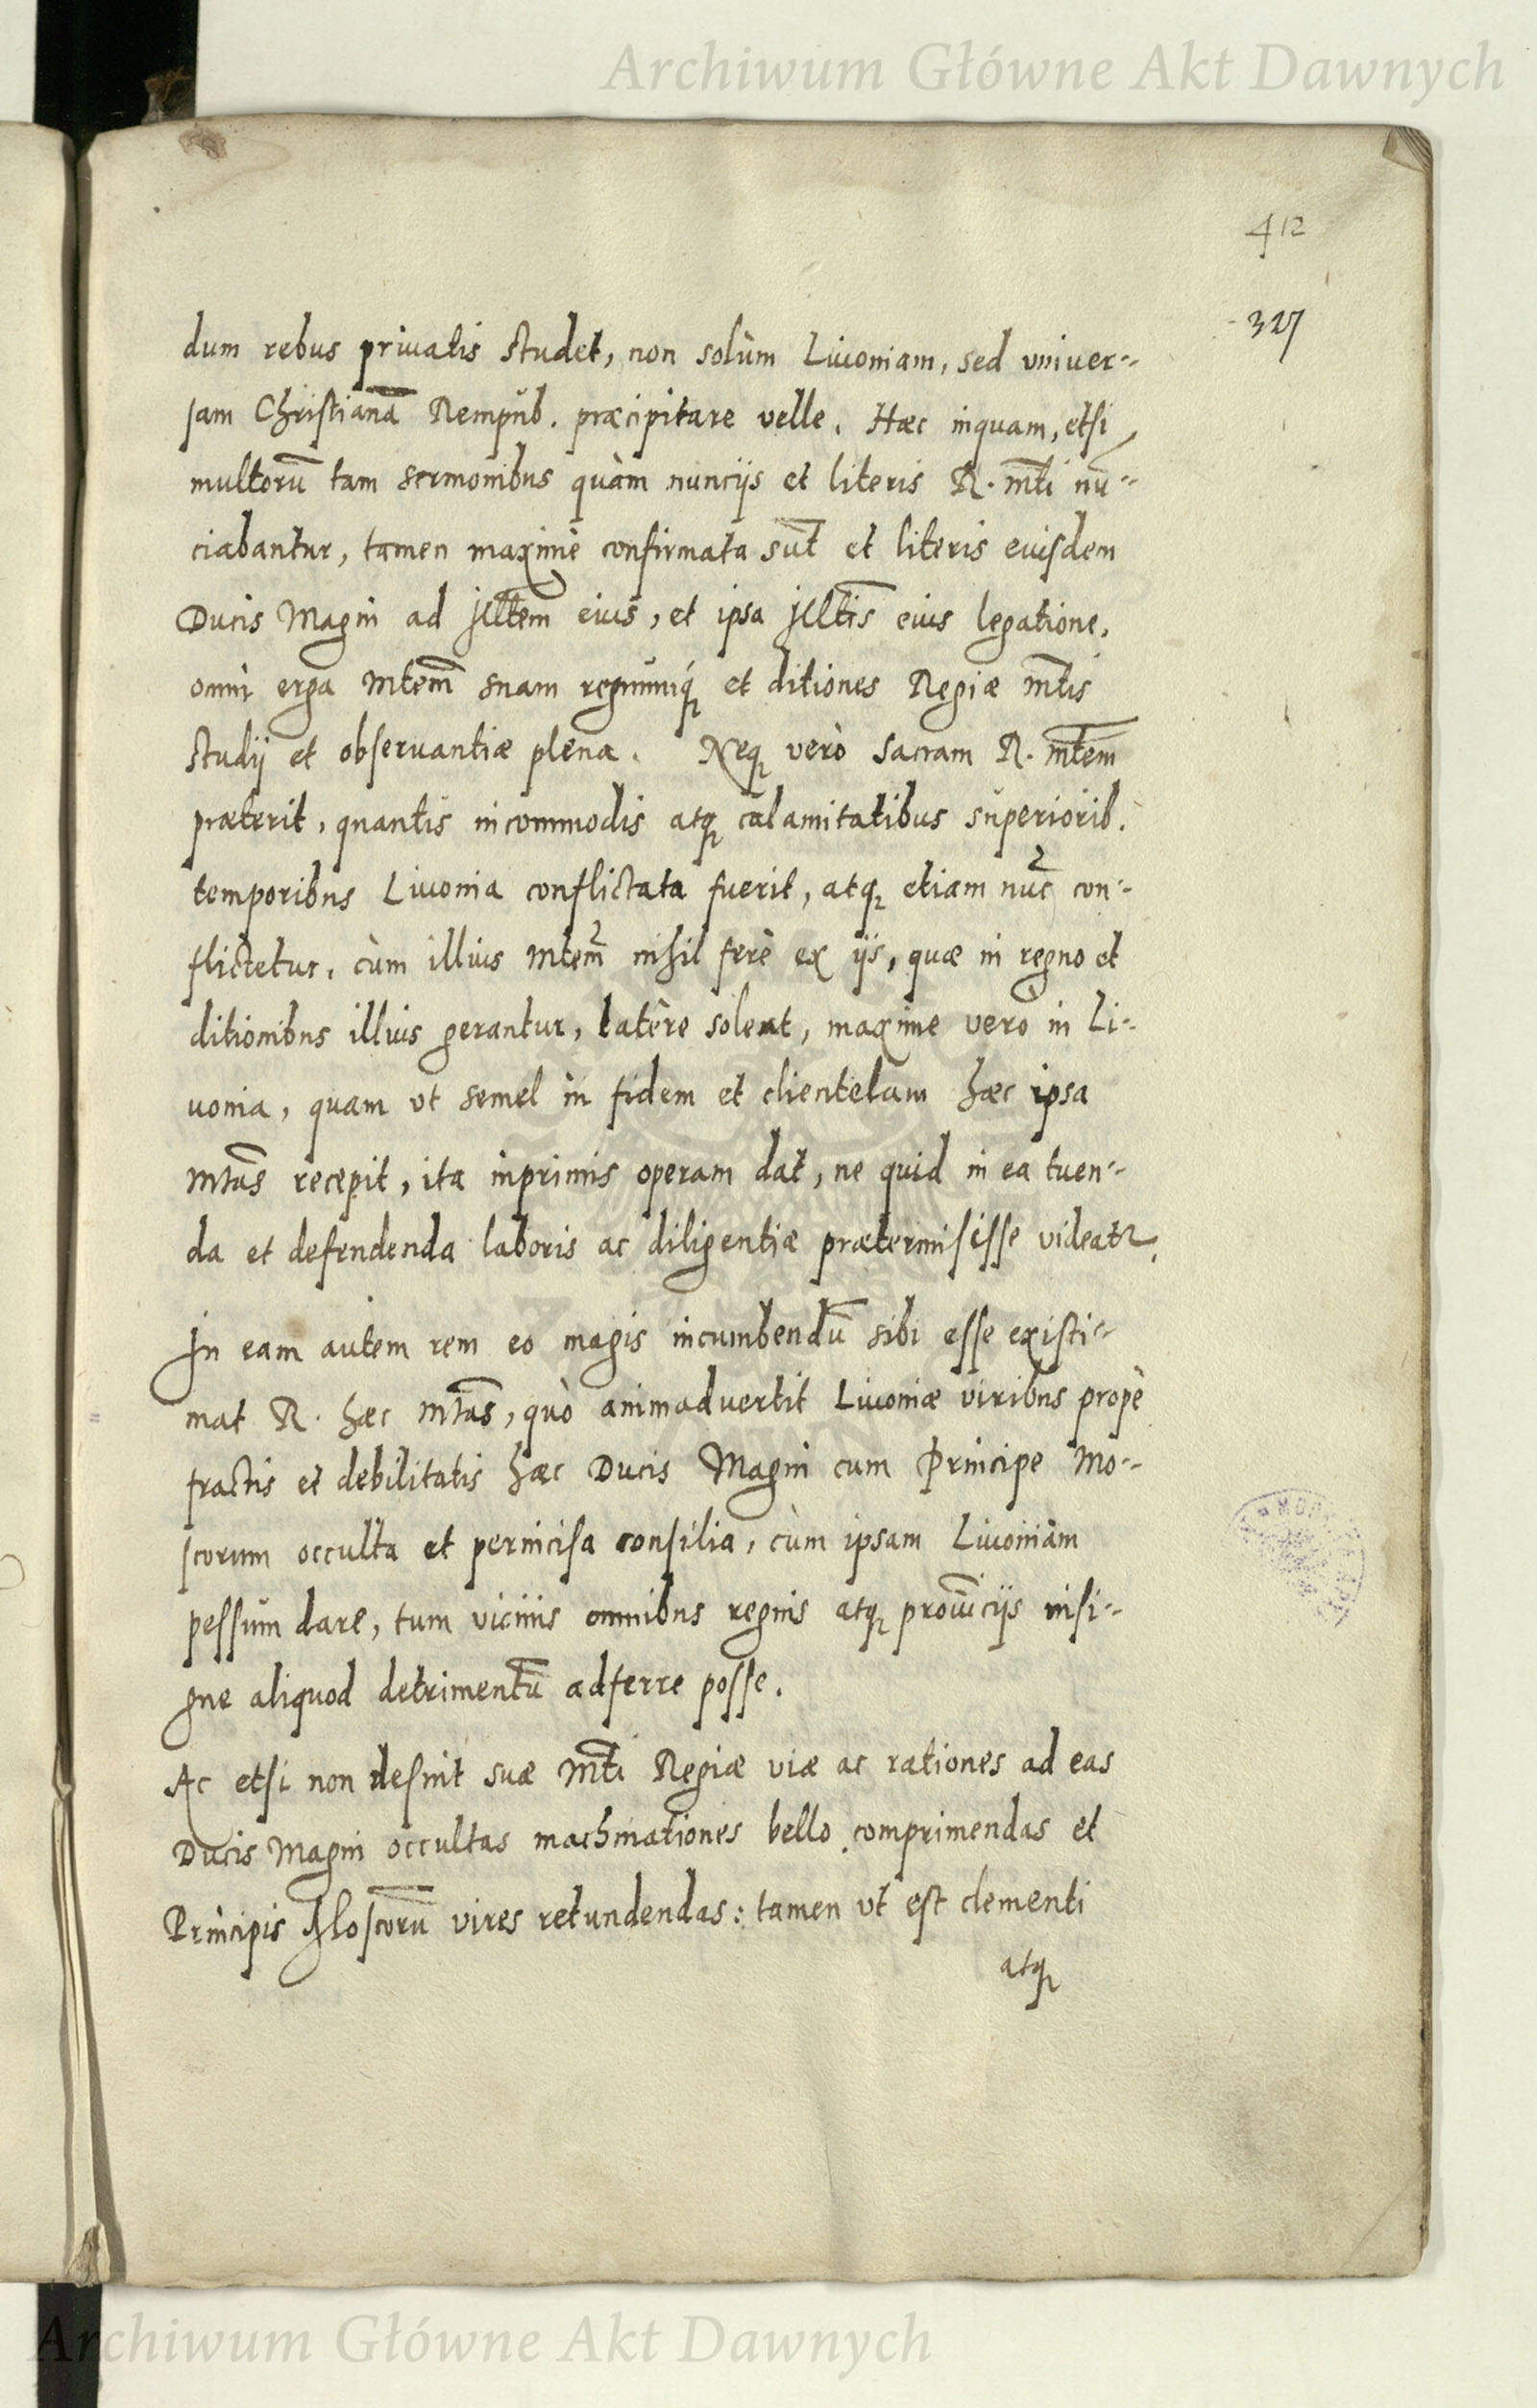 Archiwum Główne Akt Dawnych
412
327
dum rebus priuatis studet, non solùm Liuoniam, sed vniuer-
sam Christianā Rempub. præcipitare velle. Hæc inquam, etsi
multorū tam sermonibus quàm nuncijs et literis R. mti nū-
ciabantur, tamen maximè confirmata sūt et literis eiusdem
Ducis Magni ad Illtem eius, et ipsa Illtis eius legatione,
omni erga Mtem suam regnumq́ et ditiones Regiæ mtis
studij et obseruantiæ plena. Neq verò sacram R. mtem
præterit, quantis incommodis atq calamitatibus superiorib.
temporibus Liuonia conflictata fuerit, atq etiam nūc con-
flictetur, cùm illius Mtem nihil ferè ex ijs, quæ in regno et
ditionibus illius gerantur, latère soleat, maxime verò in Li-
uonia, quam vt semel in fidem et clientelam hæc ipsa
Mtas recepit, ita inprimis operam dat, ne quid in ea tuen-
da et defendenda laboris ac diligentiæ prætermisisse videatr.
In eam autem rem eo magis incumbendū sibi esse existi-
mat R. hæc Mtas, quò animaduertit Liuoniæ viribus propè
fractis et debilitatis hæc Ducis Magni cum Principe Mo-
scorum occulta et pernicisa consilia, cùm ipsam Liuoniam
pessum dare, tum vicinis omnibus regnis atq prouīcijs insi-
gne aliquod detrimentū adferre posse.
Ac etsi non desint suæ Mti Regiæ viæ ac rationes ad eas
Ducis Magni occultas machinationes bello comprimendas et
Principis Moscorū vires retundendas: tamen vt est clementi
atq
Archiwum Główne Akt Dawnych